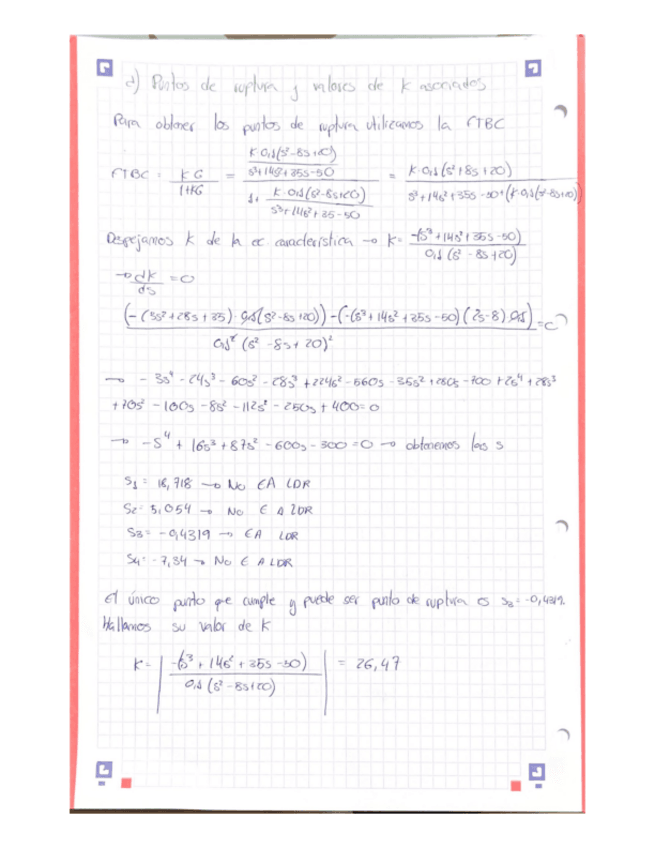 d) Puntos de ruptura y valores de K asociados
Para obtener los puntos de ruptura utilizamos la FTBC
FTBC = KG / 1+KG = K·0,1(s²-8s+20) / s³+14s²+35s-50 / 1+ K·0,1(s²-8s+20) / s³+14s²+35-50 = K·0,1(s²+8s+20) / s³+14s²+35s-50+(K·0,1(s²-8s+20))
Despejamos K de la ec. característica → K= -(s³+14s²+35s-50) / 0,1(s²-8s+20)
→ dK/ds = 0
(-(3s²+28s+35)·0,1(s²-8s+20))-(-(s³+14s²+35s-50)(2s-8)0,1) / 0,1²(s²-8s+20)² = 0
→ -3s⁴-24s³-60s²-28s³+224s²-560s-35s²+280s-700+2s⁴+28s³
+70s²-100s-8s³-112s²-280s+400=0
→ -s⁴+16s³+87s²-600s-300=0 → obtenemos las s
S₁ = 18,718 → No EA LDR
S₂ = 5,054 → No E A LDR
S₃ = -0,4319 → EA LDR
S₄ = -7,34 → No E A LDR
El único punto que cumple y puede ser punto de ruptura es S₃=-0,4319.
Hallamos su valor de K
K = | -(s³+14s²+35s-50) / 0,1(s²-8s+20) | = 26,47